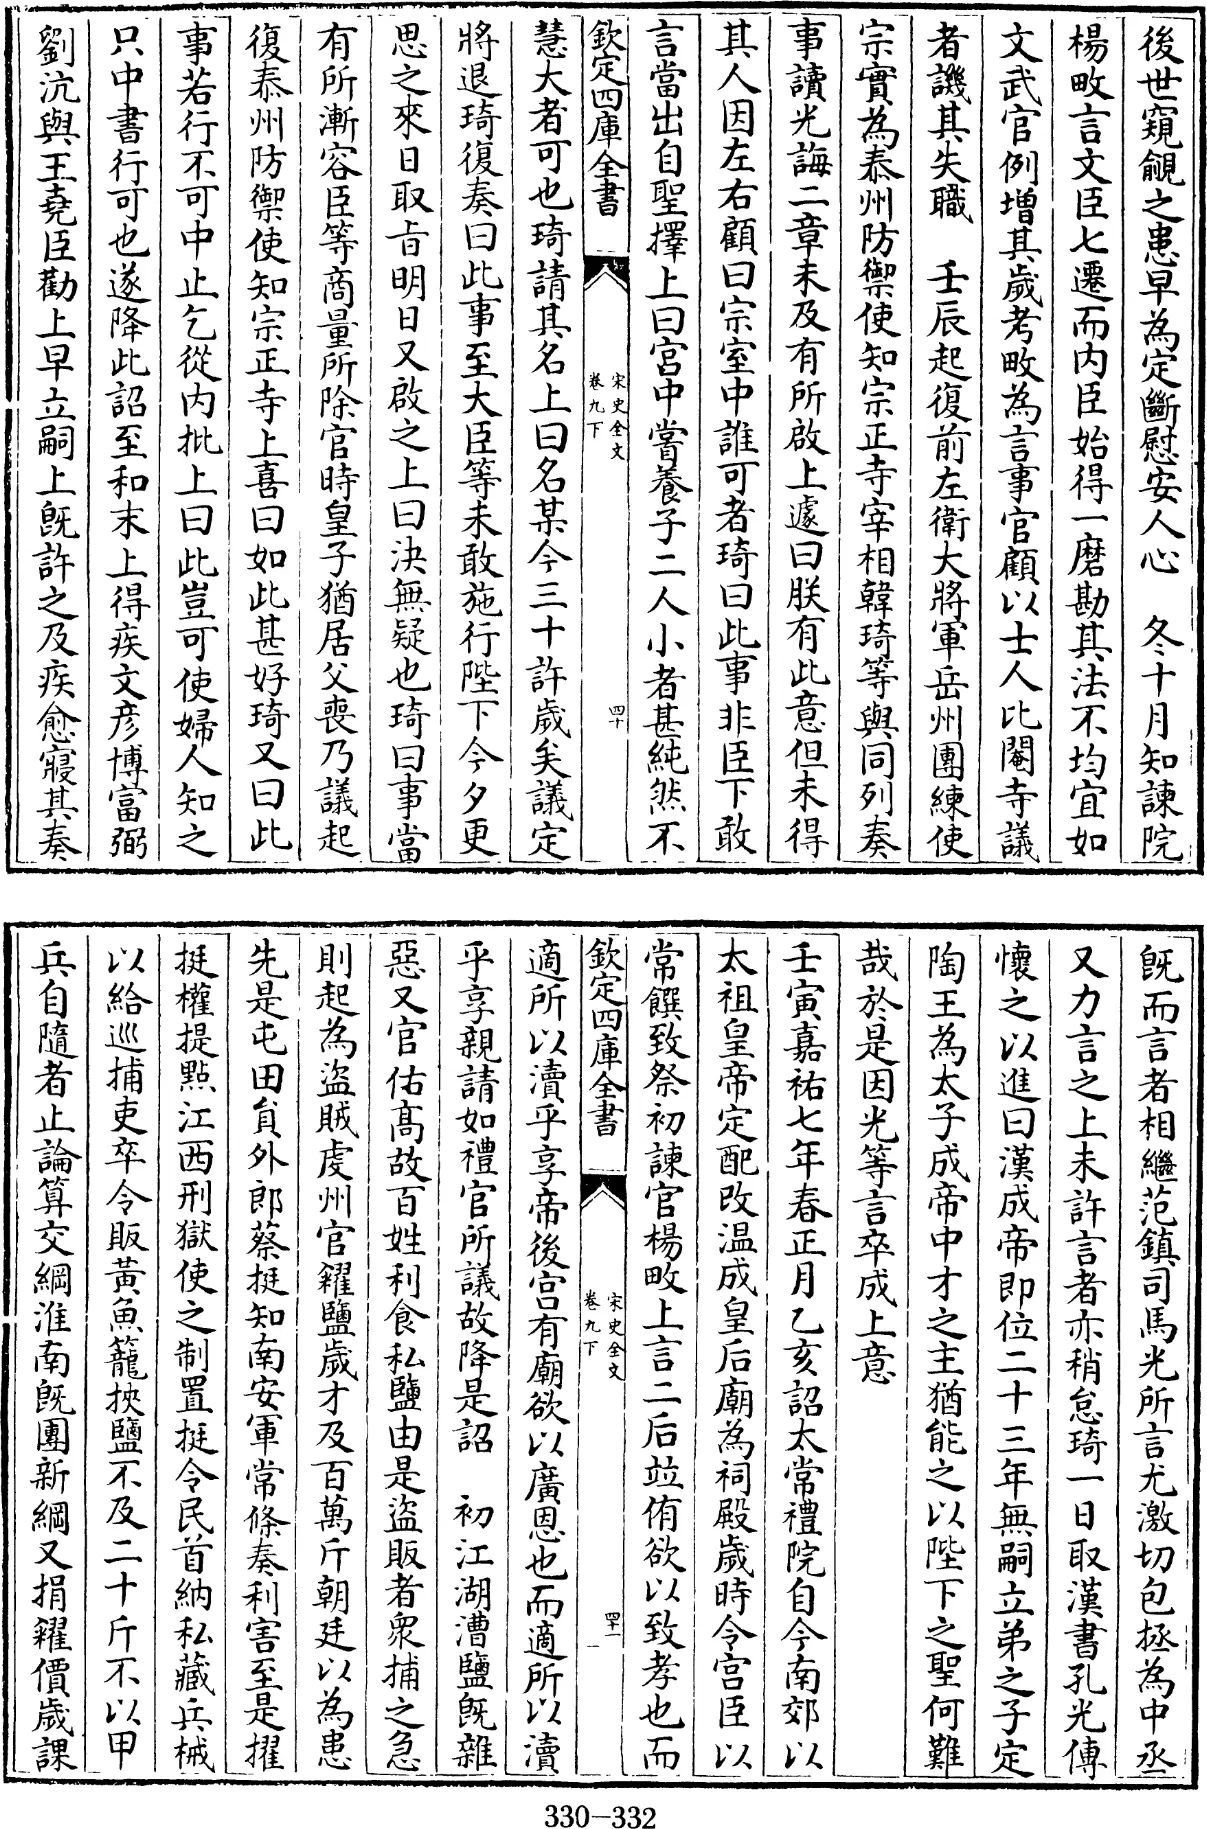 後世窺覦之患早為定斷慰安人心　冬十月知諫院
楊畋言文臣七遷而内臣始得一磨勘其法不均宜如
文武官例增其歲考畋為言事官顧以士人比閹寺議
者譏其失職　壬辰起復前左衛大將軍岳州團練使
宗實為泰州防禦使知宗正寺宰相韓琦等與同列奏
事讀光誨二章未及有所啟上遽曰朕有此意但未得
其人因左右顧曰宗室中誰可者琦曰此事非臣下敢
言當出自聖擇上曰宮中嘗養子二人小者甚純然不
欽定四庫全書
宋史全文
卷九下
四十
慧大者可也琦請其名上曰名某今三十許歲矣議定
將退琦復奏曰此事至大臣等未敢施行陛下今夕更
思之來日取旨明日又啟之上曰決無疑也琦曰事當
有所漸容臣等商量所除官時皇子猶居父喪乃議起
復泰州防禦使知宗正寺上喜曰如此甚好琦又曰此
事若行不可中止乞從内批上曰此豈可使婦人知之
只中書行可也遂降此詔至和末上得疾文彦博富弼
劉沆與王堯臣勸上早立嗣上既許之及疾愈寢其奏
既而言者相繼范鎮司馬光所言尤激切包拯為中丞
又力言之上未許言者亦稍怠琦一日取漢書孔光傳
懷之以進曰漢成帝即位二十三年無嗣立弟之子定
陶王為太子成帝中才之主猶能之以陛下之聖何難
哉於是因光等言卒成上意
壬寅嘉祐七年春正月乙亥詔太常禮院自今南郊以
太祖皇帝定配改温成皇后廟為祠殿歲時令宫臣以
常饌致祭初諫官楊畋上言二后竝侑欲以致孝也而
欽定四庫全書
宋史全文
卷九下
四十一
適所以瀆乎享帝後宫有廟欲以廣恩也而適所以瀆
乎享親請如禮官所議故降是詔　初江湖漕鹽既雜
惡又官估髙故百姓利食私鹽由是盜販者衆捕之急
則起為盜賊虔州官糴鹽歲才及百萬斤朝廷以為患
先是屯田貟外郎蔡挺知南安軍常條奏利害至是擢
挺權提點江西刑獄使之制置挺令民首納私藏兵械
以給巡捕吏卒令販黃魚籠挾鹽不及二十斤不以甲
兵自隨者止論算交綱淮南既團新綱又捐糴價歲課
330－332